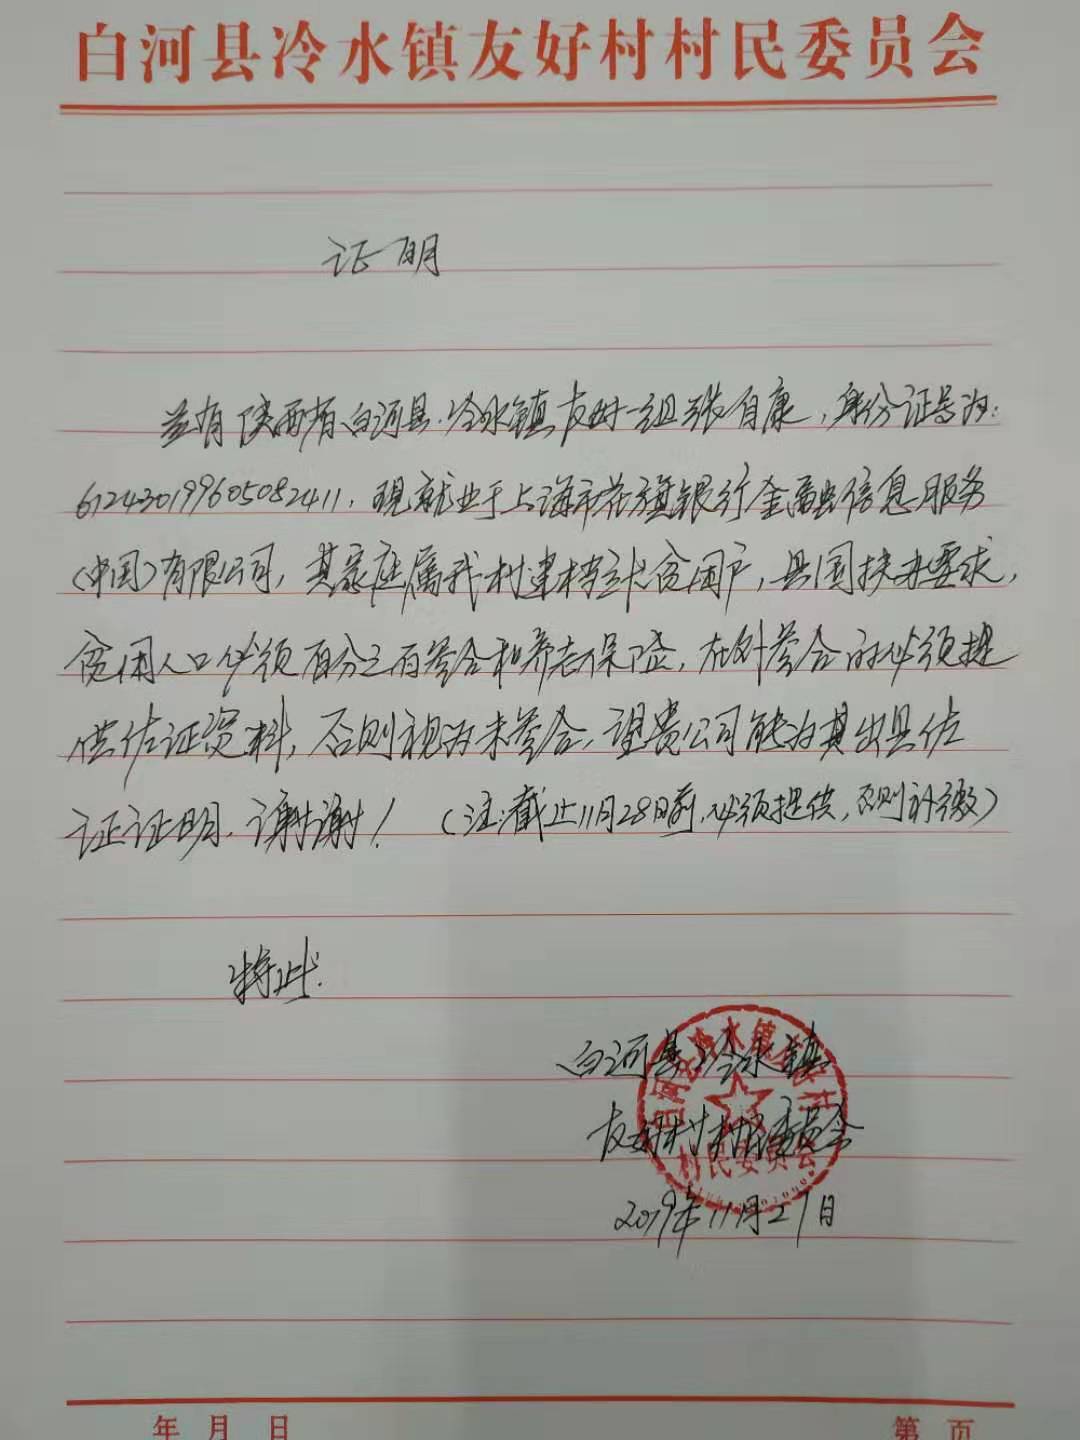 白河县冷水镇友好村村民委员会
证明
兹有陕西省白河县冷水镇友好村一组张自康，身份证号为：
612430199605082411，现就业于上海市花旗银行金融信息服务
（中国）有限公司，其家庭属我村建档立卡贫困户，县国扶办要求，
贫困人口必须百分之百参合和养老保险，在外参合的必须提
供佐证资料，否则视为未参合，望贵公司能为其出具佐
证证明，谢谢！（注：截止11月28日前，必须提供，否则补缴）
特此.
白河县冷水镇
友好村村民委员会
2019年11月27日
村民委员会
年 月 日 第 页